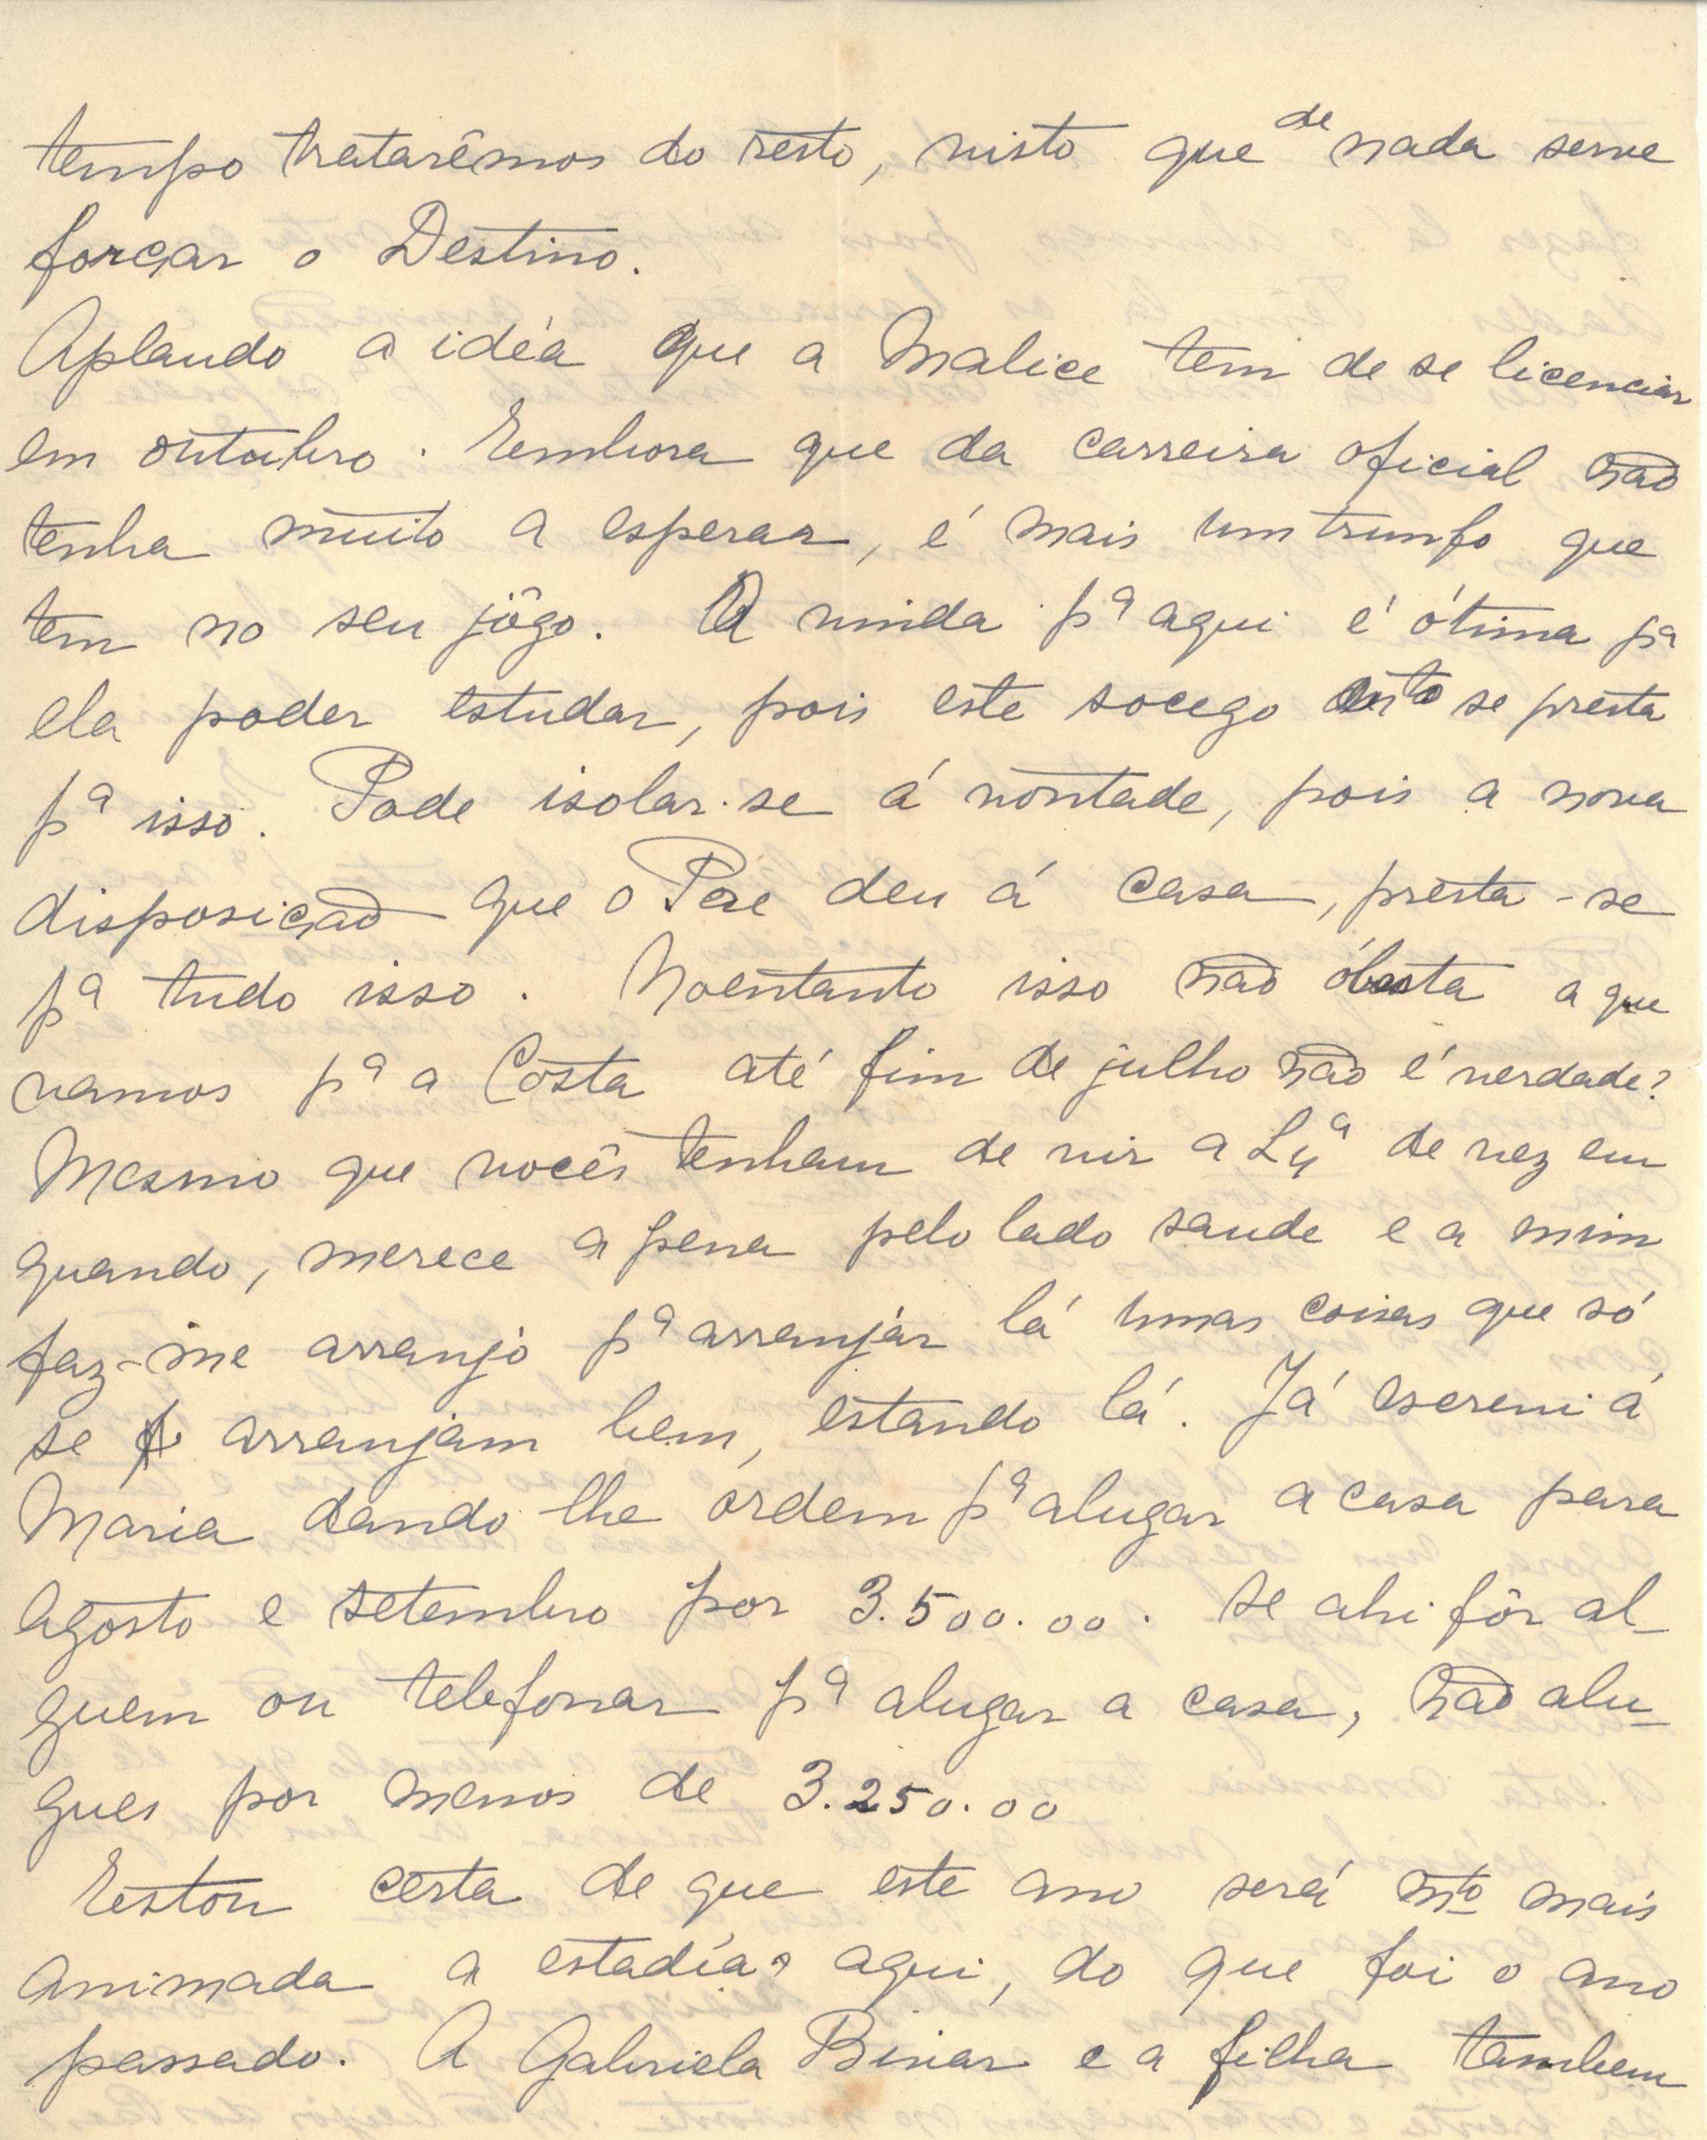 tempo tratarêmos do resto, visto que de nada serve
forçar o Destino.
Aplaudo a idéa que a Malice tem de se licenciar
em outubro. Embora que da carreira oficial não
tenha muito a esperar, é mais um trunfo que
tem no seu jôgo. A vinda pª aqui é ótima pª
ela poder estudar, pois este socego se presta
pª isso. Pode isolar-se á vontade, pois a nova
disposição que o Pae deu á casa, presta-se
pª tudo isso. Noentanto isso não óbsta a que
vamos pª a Costa até fim de julho não é verdade?
Mesmo que vocês tenham de vir a Lxª de vez em
quando, merece a pena pelo lado saude e a mim
faz-me arranjo pª arranjar lá umas coisas que só
se arranjam bem, estando lá. Já escrevi á
Maria dando-lhe órdem pª alugar a casa para
Agosto e setembro por 3.500.00. Se ahi fôr al-
guem ou telefonar pª alugar a casa, não alu-
gues por menos de 3.250.00
Estou certa de que este ano será mto mais
animada a estadía aqui, do que foi o ano
passado. A Gabriela Bivar e a filha tambem